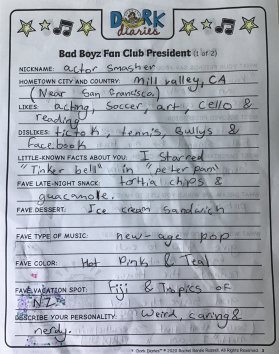 DORK
diaries
Bad Boyz Fan Club President (1 of 2)
NICKNAME: actor Smasher
HOMETOWN CITY AND COUNTRY: Mill valley, CA
(Near San fransisco)
LIKES: acting, Soccer, art, Cello &
reading
DISLIKES: tictok, tennis, Bullys &
facebook
LITTLE-KNOWN FACTS ABOUT YOU: I Starred
"Tinker bell" in "peter pan"
FAVE LATE-NIGHT SNACK: tortia chips &
guacamole.
FAVE DESSERT: Ice cream Sandwich
FAVE TYPE OF MUSIC: new-age pop
FAVE COLOR: Hot pink & Teal
FAVE VACATION SPOT: Fiji & Tropics of
NZ
DESCRIBE YOUR PERSONALITY: Weird, caring &
nerdy.
Dork Diaries™ © 2020 Rachel Renée Russell. All Rights Reserved. 3